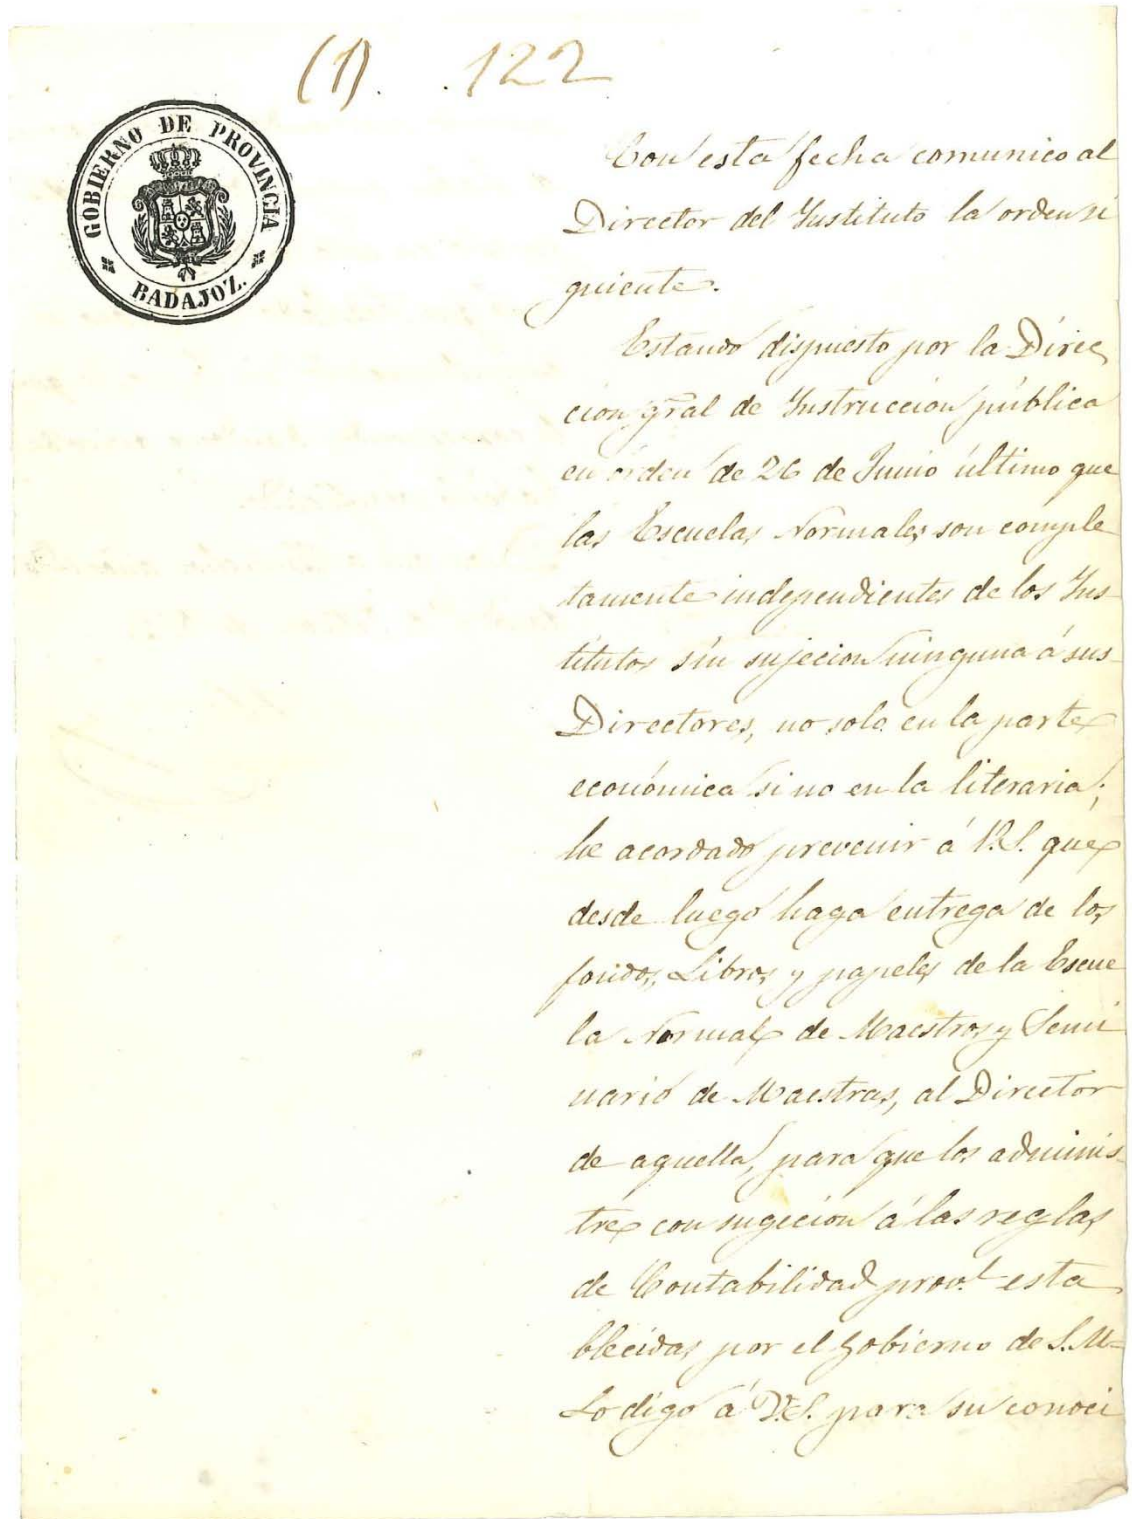 (1). .122
GOBIERNO DE PROVINCIA
BADAJOZ.
Con esta fecha comunico al
Director del Instituto la orden si
guiente.
Estando dispuesto por la Direc
cion gral de Instruccion pública
en órden de 26 de Junio último que
las Escuelas Normales son comple
tamente independientes de los Ins-
titutos sin sujecion ninguna á sus
Directores, no solo en la parte
económica si no en la literaria;
he acordado prevenir á V.S. que
desde luego haga entrega de los
fondos, Libros y papeles de la Escue
la Normal de Maestros y Semi
nario de Maestras, al Director
de aquella, para que los adminis-
tre con sugecion á las reglas
de Contabilidad provl. esta
blecidas por el Gobierno de S.M=
Lo digo á V.S. para su conoci